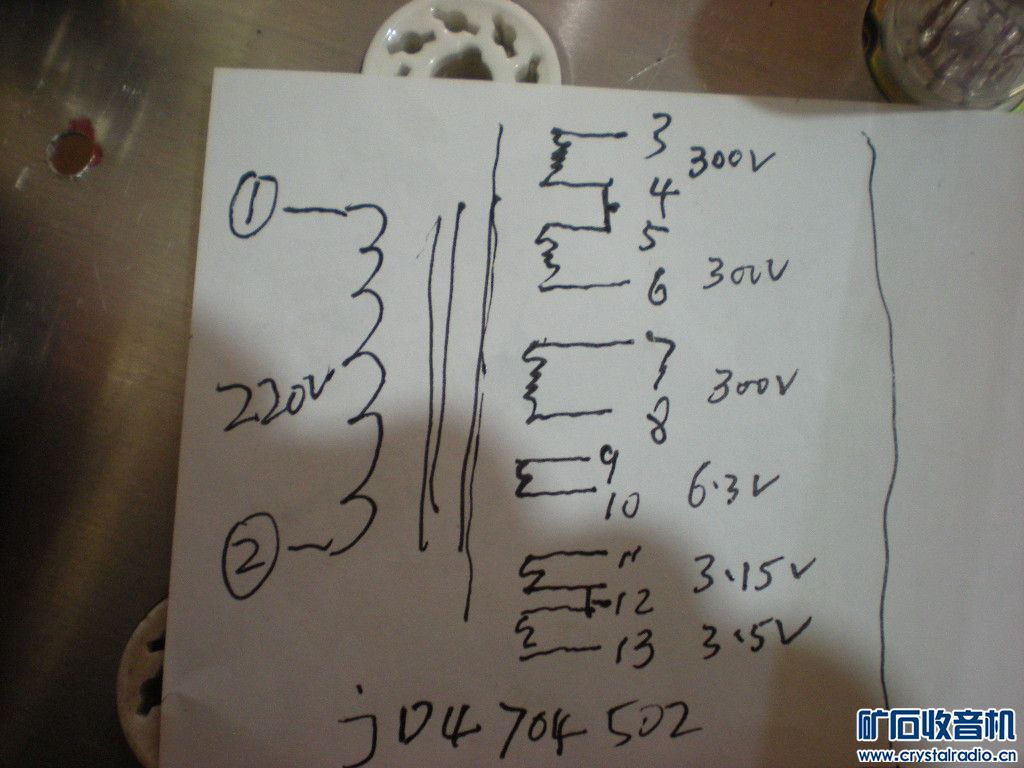 ① 3 300V
4
5
6 300V
220V
7 300V
8
9
10 6.3V
② 11 3.15V
12
13 3.5V
jD4704502
矿石收音机
www.crystalradio.cn